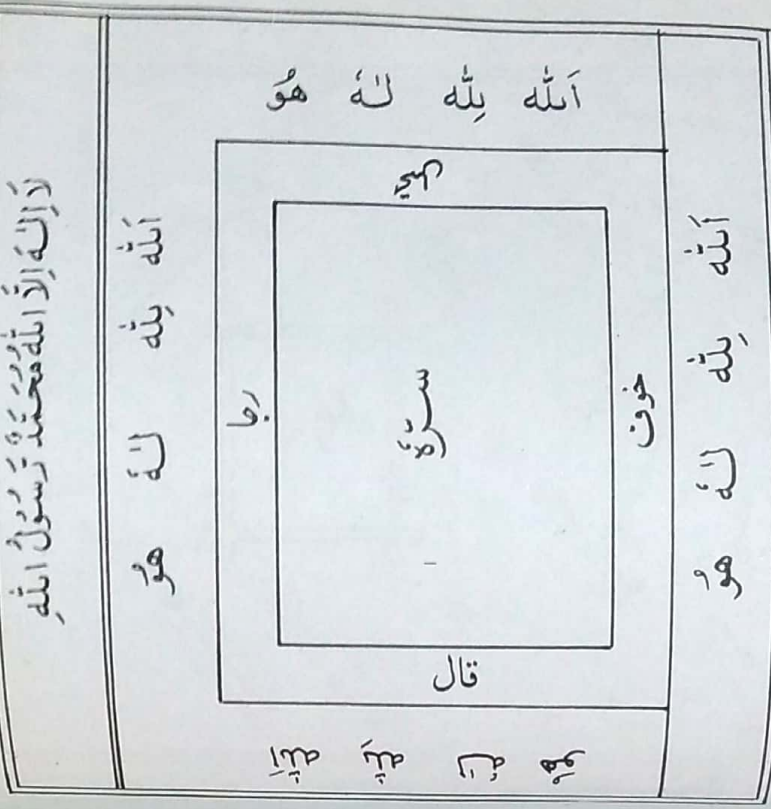 لَا اِلٰهَ اِلَّا اللهُ مُحَمَّدٌ رَّسُوْلُ اللهِ
اَللّٰه لِلّٰه لَهٗ هُوَ
اَللّٰه لِلّٰه لَهٗ هُوَ
اَللّٰه لِلّٰه لَهٗ هُوَ
اَللّٰه لِلّٰه لَهٗ هُوَ
رجا
خوف
قال